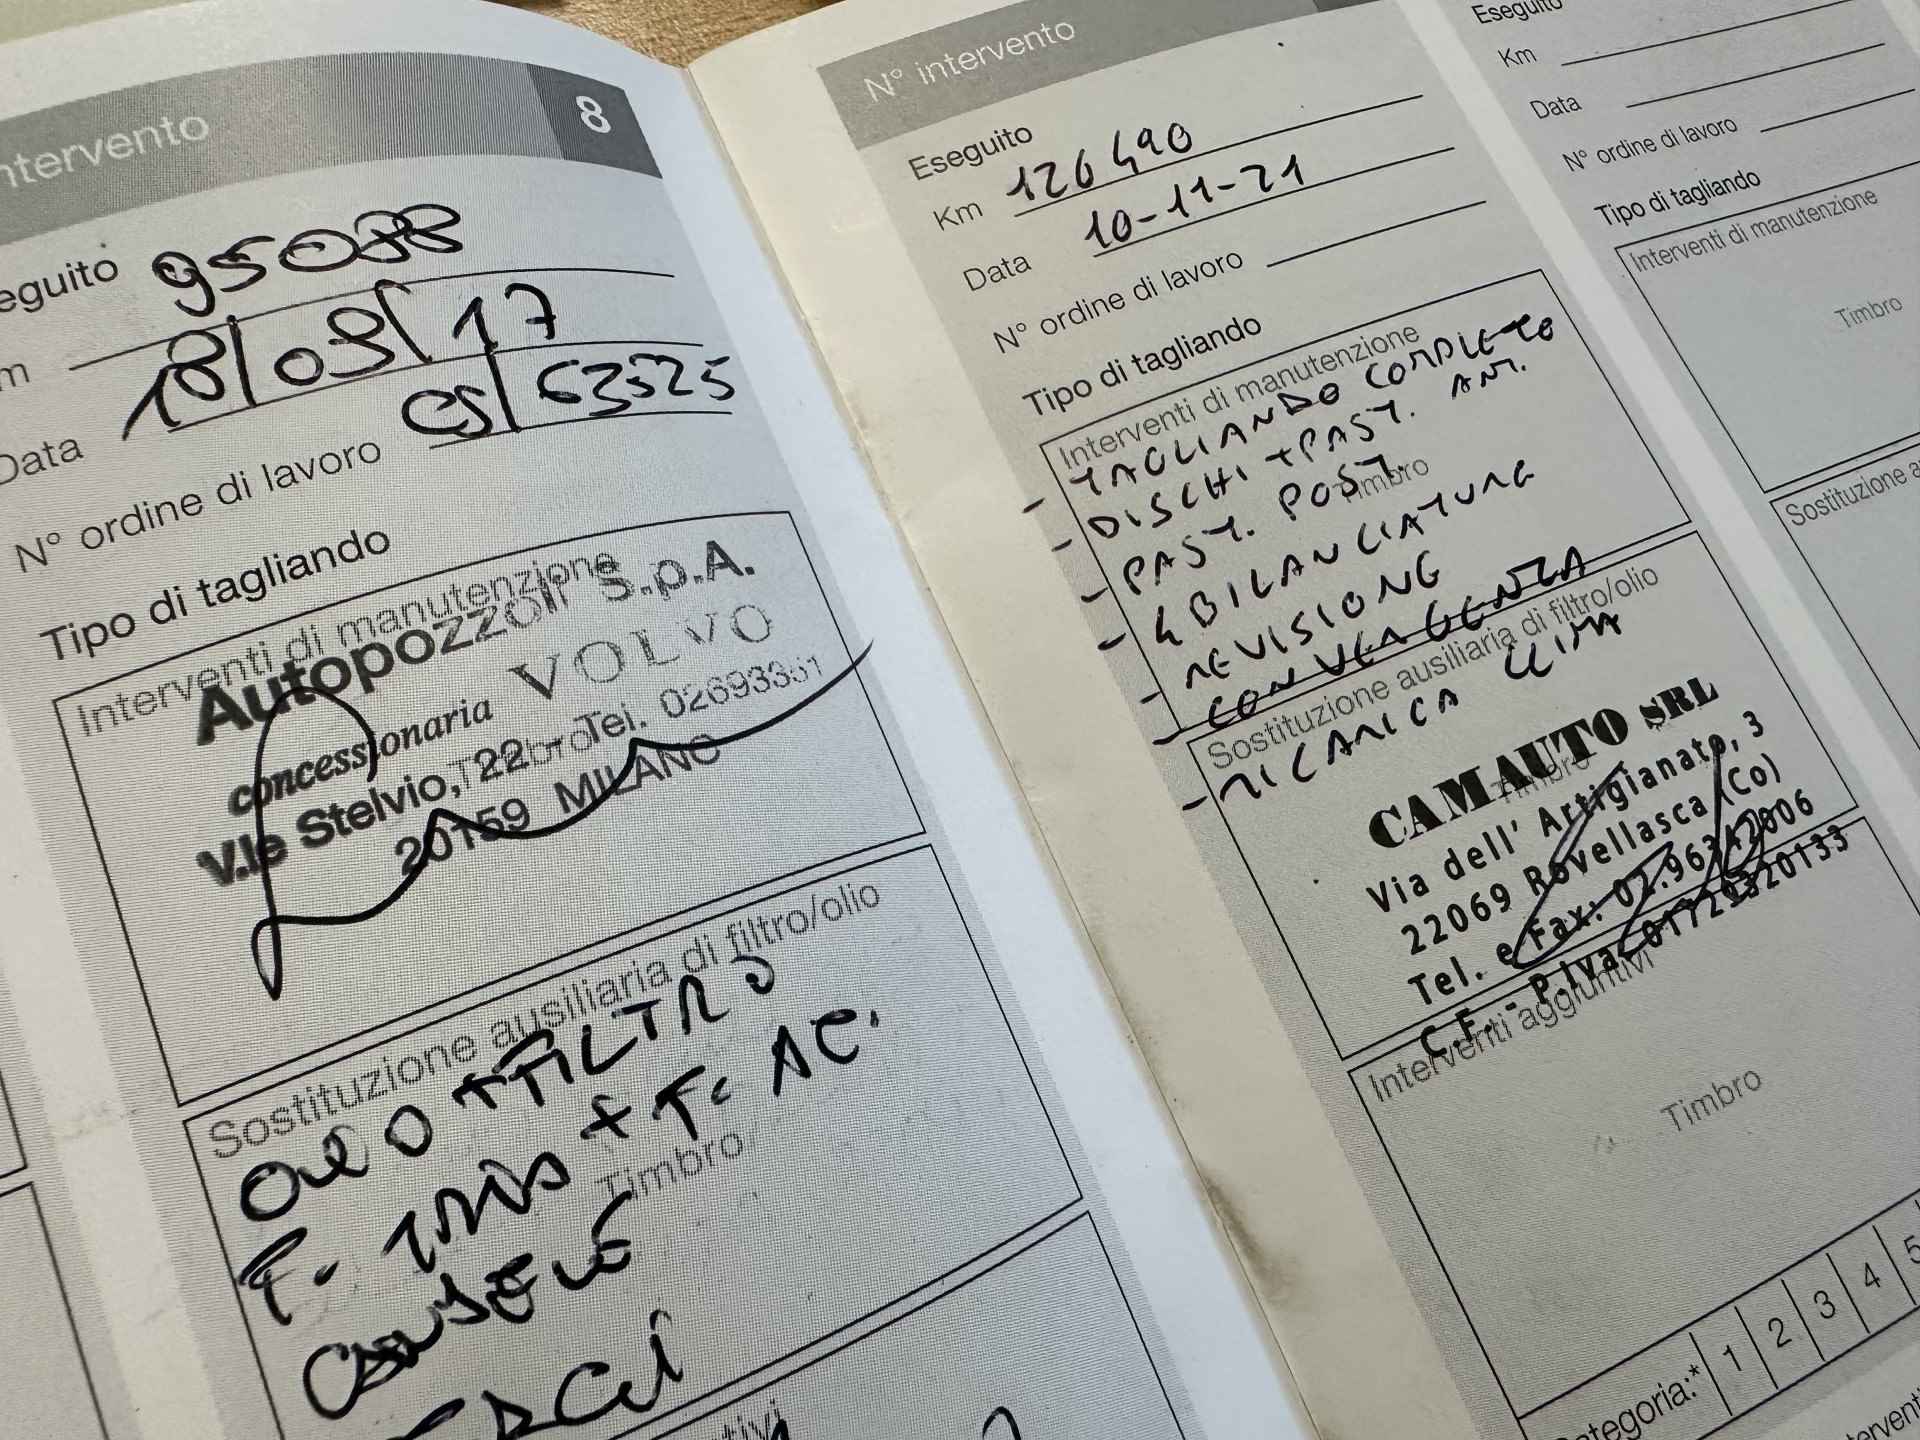 intervento 8
eseguito 95088
Km
Data 18/09/17
N° ordine di lavoro CS 63525
Tipo di tagliando
Interventi di manutenzione
Timbro
Autopozzoli S.p.A.
concessionaria VOLVO
V.le Stelvio, 22 - Tel. 02693331
20159 MILANO
Sostituzione ausiliaria di filtro/olio
Timbro
OLIO + FILTRO
F. + F. AC.
N° intervento
Eseguito
Km 126490
Data 10-11-21
N° ordine di lavoro
Tipo di tagliando
Interventi di manutenzione
Timbro
- TAGLIANDO COMPLETO
- DISCHI + PAST. ANT.
- PAST. POST.
- 4 BILANCIATURE
- REVISIONE
- CONVERGENZA
Sostituzione ausiliaria di filtro/olio
Timbro
- RICARICA CLIMA
CAMAUTO SRL
Via dell' Artigianato, 3
22069 Rovellasca (Co)
Tel. e Fax: 02.96342006
C.F. - P.Iva 01729320133
Interventi aggiuntivi
Timbro
Categoria:* 1 2 3 4 5
Eseguito
Km
Data
N° ordine di lavoro
Tipo di tagliando
Interventi di manutenzione
Timbro
Sostituzione